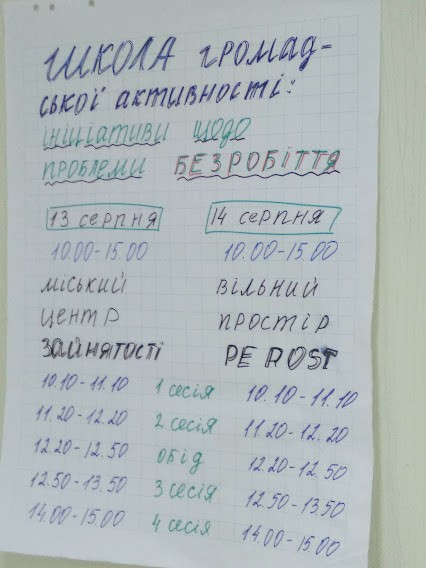 ШКОЛА громад-
ської активності:
ініціативи щодо
проблеми БЕЗРОБІТТЯ
13 серпня 14 серпня
10.00-15.00 10.00-15.00
міський вільний
центр простір
зайнятості РЕPOST
10.10-11.10 1 сесія 10.10-11.10
11.20-12.20 2 сесія 11.20-12.20
12.20-12.50 обід 12.20-12.50
12.50-13.50 3 сесія 12.50-13.50
14.00-15.00 4 сесія 14.00-15.00